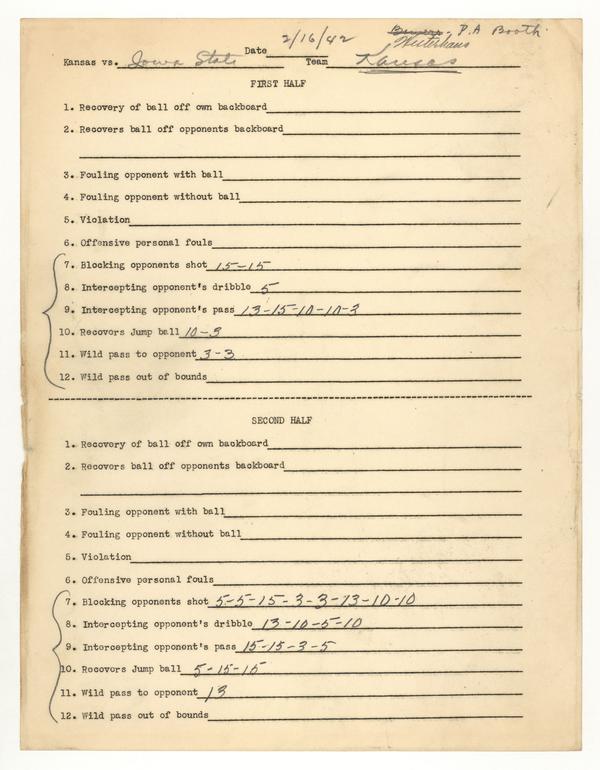 Date 2/16/42 Beyers - P.A Booth
Westerhaus
Kansas vs. Iowa State Team Kansas
FIRST HALF
1. Recovery of ball off own backboard
2. Recovers ball off opponents backboard
3. Fouling opponent with ball
4. Fouling opponent without ball
5. Violation
6. Offensive personal fouls
7. Blocking opponents shot 15-15
8. Intercepting opponent's dribble 5
9. Intercepting opponent's pass 13-15-10-10-3
10. Recovers Jump ball 10-3
11. Wild pass to opponent 3-3
12. Wild pass out of bounds
SECOND HALF
1. Recovery of ball off own backboard
2. Recovers ball off opponents backboard
3. Fouling opponent with ball
4. Fouling opponent without ball
5. Violation
6. Offensive personal fouls
7. Blocking opponents shot 5-5-15-3-3-13-10-10
8. Intercepting opponent's dribble 13-10-5-10
9. Intercepting opponent's pass 15-15-3-5
10. Recovers Jump ball 5-15-15
11. Wild pass to opponent 13
12. Wild pass out of bounds